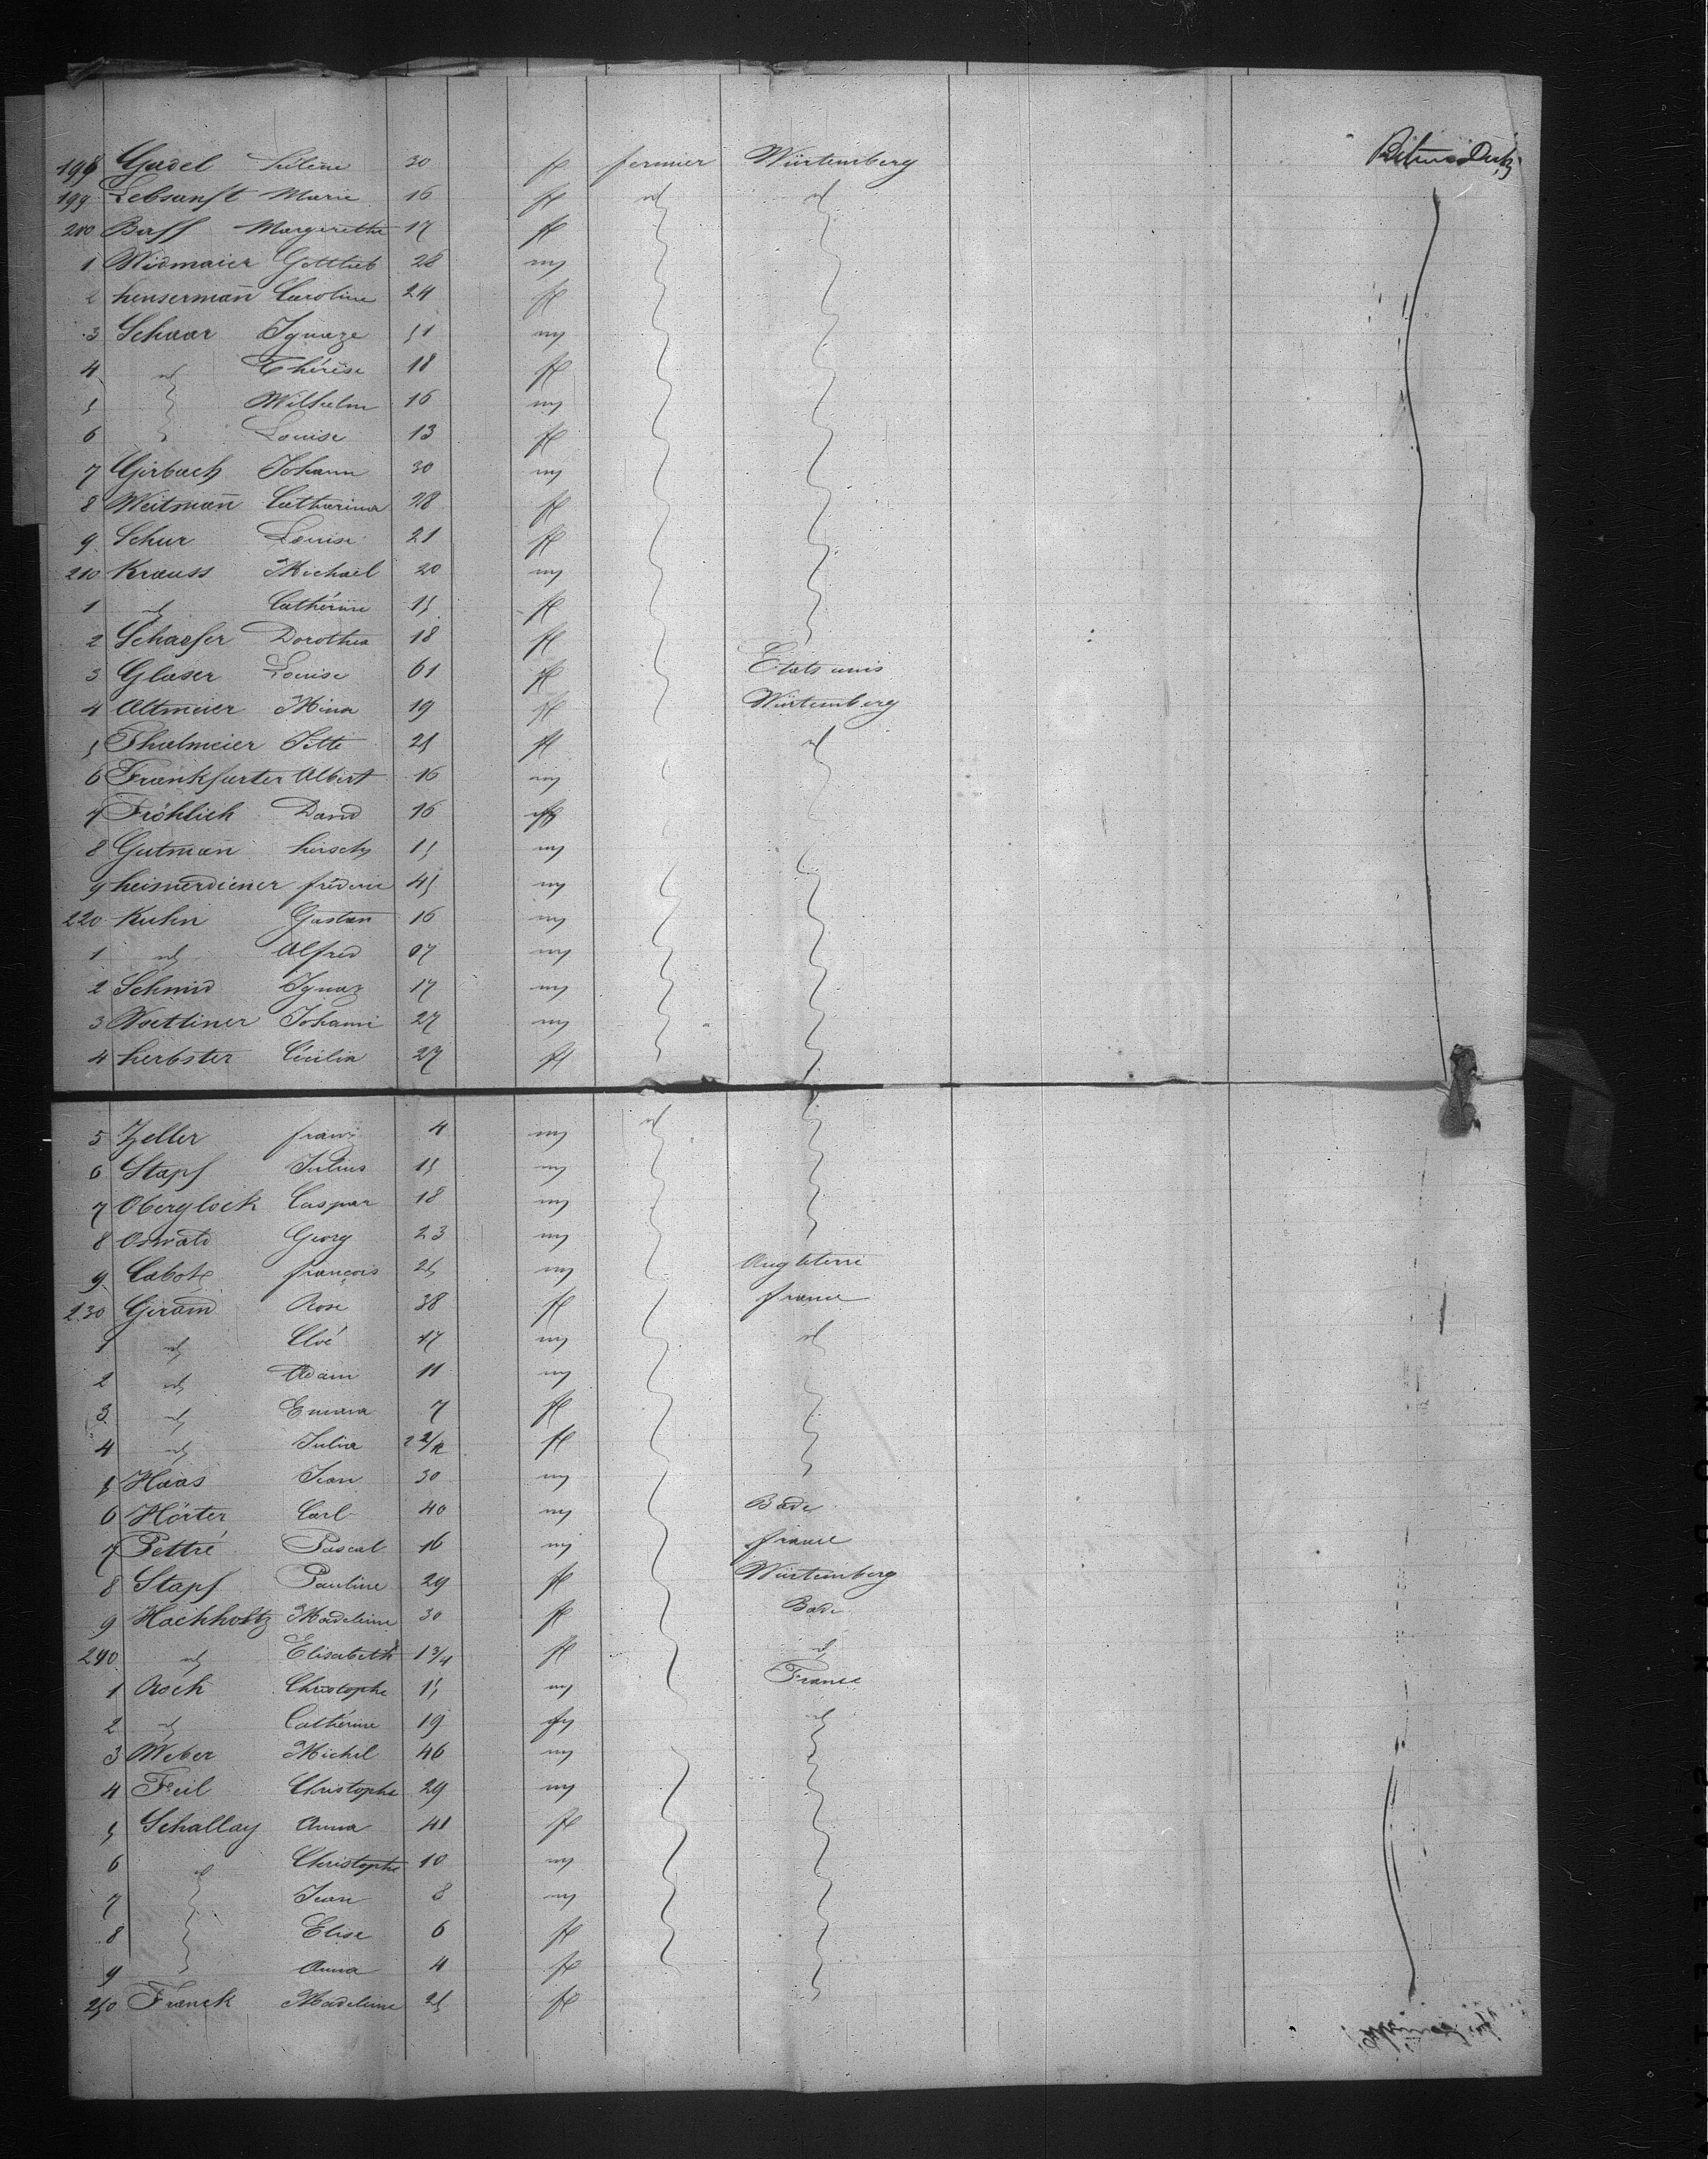 198 Gadel 30 f fermier Würtemberg
199 Lebsanft Marie 16 f id id
200 Baff Margeretha 17 f
1 Widmaier Gottlieb 28 m
2 hensermañ Caroline 24 f
3 Schaar Ignaze 51 m
4 id Thérèse 18 f
5 Wilhelm 16 m
6 Louise 13 f
7 Girbach Johann 30 m
8 Weitmañ Catharina 28 f
9 Schur Louise 21 f
210 Krauss Michael 20 m
1 id Cathérine 15 f
2 Schaefer Dorothea 18 f
3 Glaser Louise 61 f Etats unis
4 Altmeier Mina 19 f Würtemberg
5 Thalmeier Jette 25 f id
6 Frankfurter Albert 16 m
7 Fröhlich David 16
8 Gutman hirsch 15 m
9 heisnerdiener fréderic 45 m
220 Kuhn Gustav 16 m
1 id Alfred 07 m
2 Schmid Ignaz 17 m
3 Woettiner Johann 27 m
4 herbster Cécilia 27 f
5 Zeller franz 4 m id
6 Stapf Julius 15 m
7 Oberglock Caspar 18 m
8 Oswald Georg 23 m
9 françois 25 m Angleterre
230 Girand Rose 38 f france
1 id Cloé 17 m id
2 id Adam 11 m
3 id Emma 7 f
4 id Julia f
5 Haas Jean 30 m
6 Hörter Carl 40 m Bade
7 Pettré Pascal 16 m france
8 Stapf Pauline 29 f Würtemberg
9 Hachholtz Madeleine 30 f Bade
240 id Elisabeth 1 3/4 f id
1 Asch Christophe 15 m France
2 id Cathérine 19 id
3 Weber Michel 46 m
4 Feil Christophe 29 m
5 Schallay Anna 41 f
6 id Christophe 10 m
7 Jean 8 m
8 Elise 6 f
9 Anna 4 f
250 Franck Madeleine 25 f